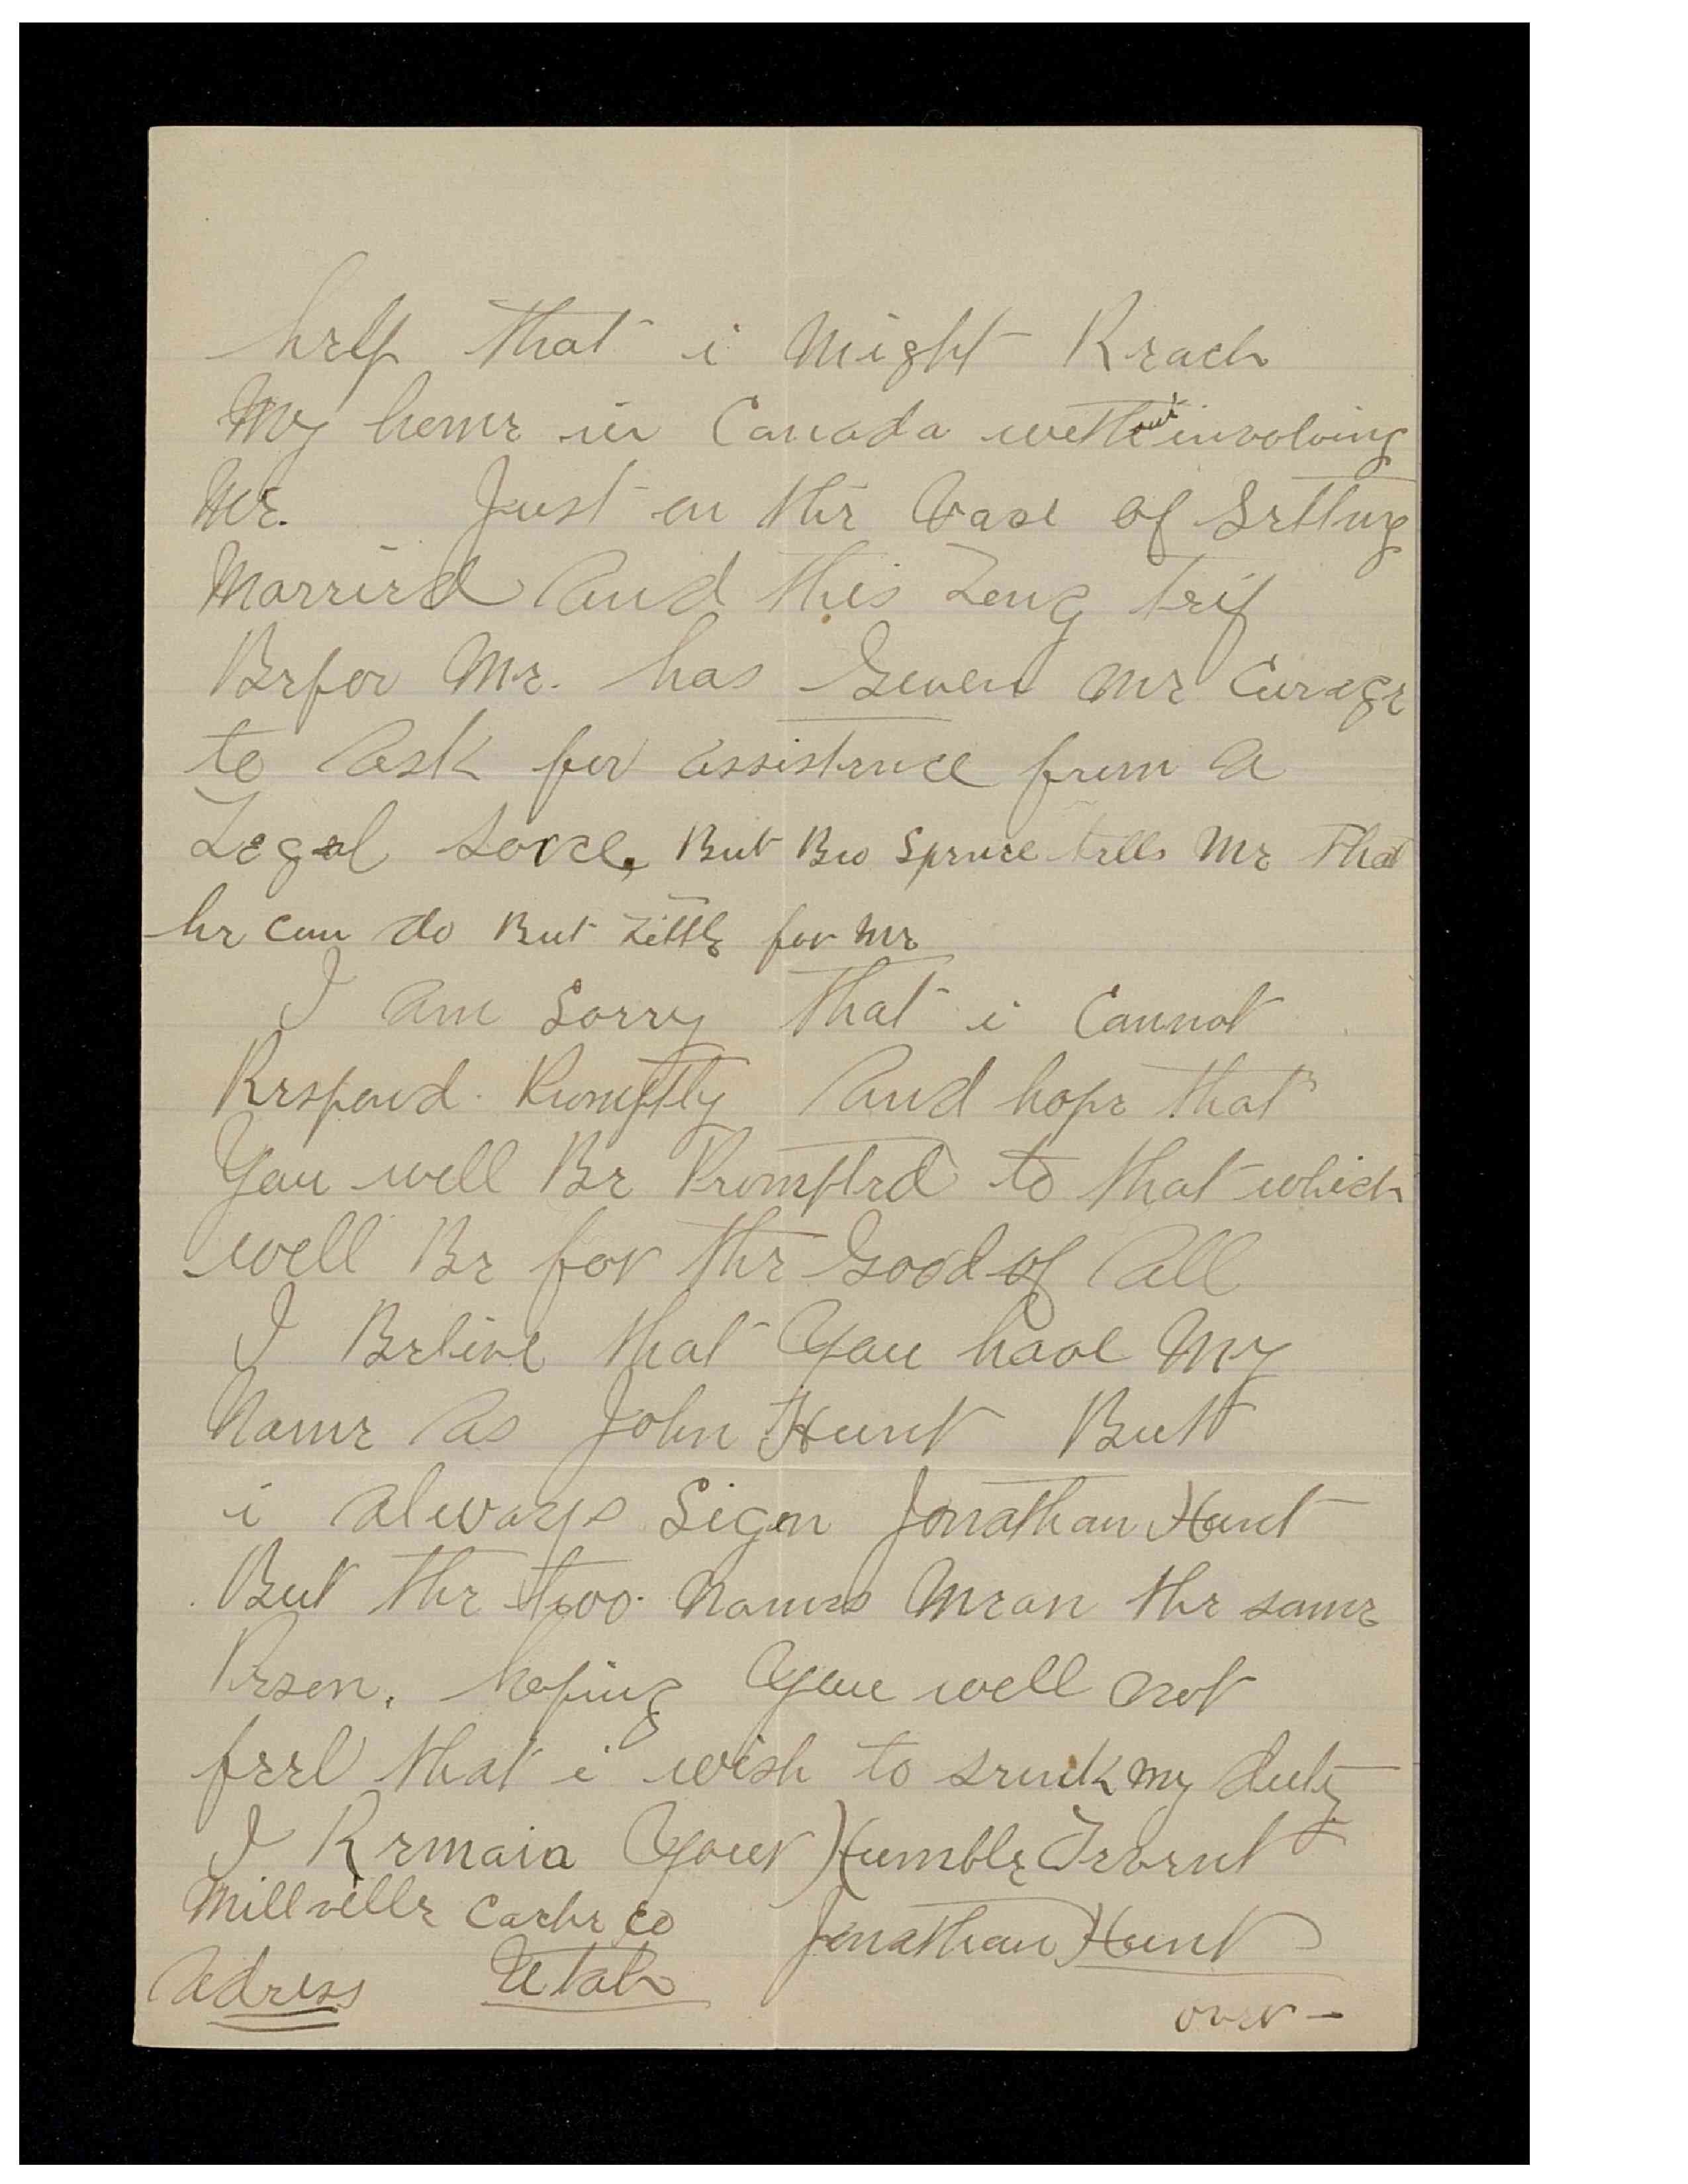 help that i Might Reach
My home in Canada without involving
Me. Just on the Vase of Getting
Married and this Long trip
Befor Me. has Geven me Curage
to ask for assistence from a
Legal Sorce, But Bro Spruce tells Me That
he can do But Little for Me
I am Sorry that i Cannot
Respond. Promptly and hope that
You well Be Prompted to that which
well Be for the Good of all
I Belive that You have My
Name as John Hunt But
i always Sign Jonathan Hunt
But the two Names Mean the same
Person. hoping You well not
feel that i wish to srink my duty
I Remain Your Humble Servent
Millville Cache Co Jonathan Hunt
Adress Utah
over -